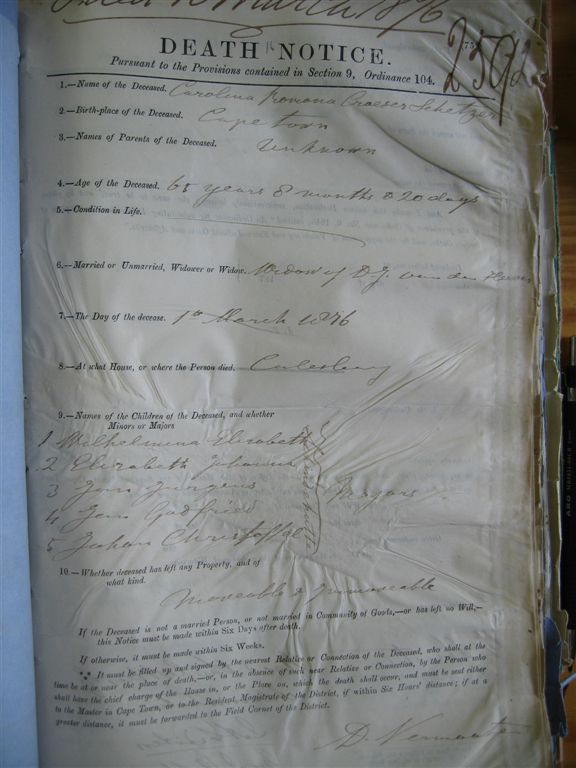 March 1876
2592
DEATH NOTICE.
Pursuant to the Provisions contained in Section 9, Ordinance 104.
1.—Name of the Deceased. Carolina Romona Schetzer
2.—Birth-place of the Deceased. Cape Town
3.—Names of Parents of the Deceased. Unknown
4.—Age of the Deceased. 65 years 8 months & 20 days
5.—Condition in Life.
6.—Married or Unmarried, Widower or Widow. Widow of D.J. van den
7.—The Day of the decease. 1st March 1876
8.—At what House, or where the Person died. Colesberg
9.—Names of the Children of the Deceased, and whether
Minors or Majors
1 Wilhelmina Elizabeth
2 Elizabeth Johanna
3 Jurgens Majors
4 Godfried
5 Johan Christoffel
10.—Whether deceased has left any Property, and of
what kind.
Moveable & Immoveable
If the Deceased is not a married Person, or not married in Community of Goods,—or has left no Will,—
this Notice must be made within Six Days after death.
If otherwise, it must be made within Six Weeks.
It must be filled up and signed by the nearest Relative or Connection of the Deceased, who shall at the
time be at or near the place of death,—or, in the absence of such near Relative or Connection, by the Person who
shall have the chief charge of the House in, or the Place on, which the death shall occur, and must be sent either
to the Master in Cape Town, or to the Resident Magistrate of the District, if within Six Hours' distance; if at a
greater distance, it must be forwarded to the Field Cornet of the District.